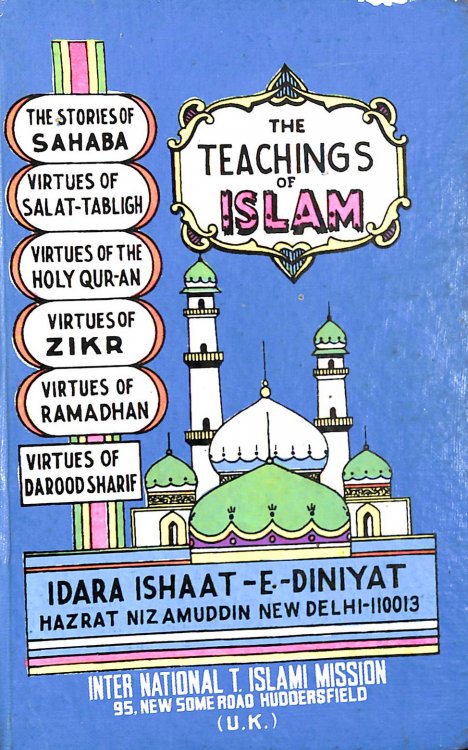 THE STORIES OF
SAHABA
VIRTUES OF
SALAT-TABLIGH
VIRTUES OF THE
HOLY QUR-AN
VIRTUES OF
ZIKR
VIRTUES OF
RAMADHAN
VIRTUES OF
DAROOD SHARIF
THE
TEACHINGS
OF
ISLAM
IDARA ISHAAT-E-DINIYAT
HAZRAT NIZAMUDDIN NEW DELHI-110013
INTER NATIONAL T. ISLAMI MISSION
95, NEW SOME ROAD HUDDERSFIELD
(U.K.)